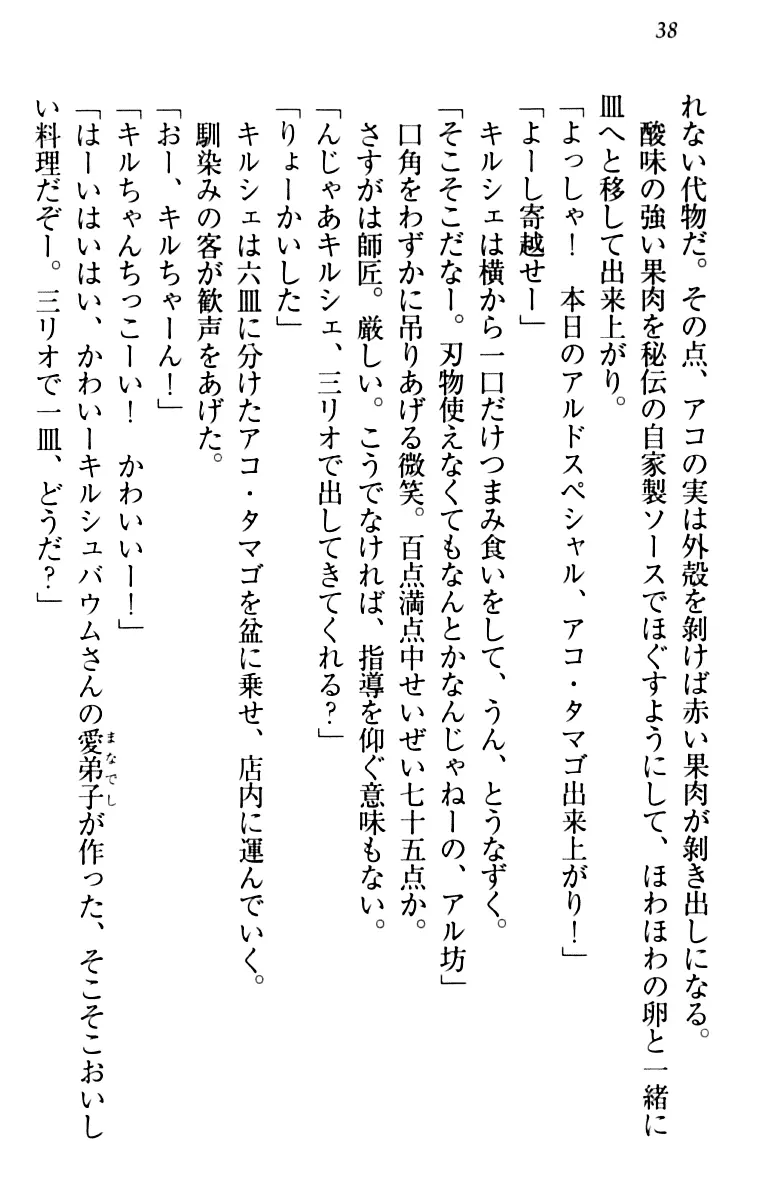 38
れない代物だ。その点、アコの実は外殻を剝けば赤い果肉が剝き出しになる。
酸味の強い果肉を秘伝の自家製ソースでほぐすようにして、ほわほわの卵と一緒に
皿へと移して出来上がり。
「よっしゃ！　本日のアルドスペシャル、アコ・タマゴ出来上がり！」
「よーし寄越せー」
キルシェは横から一口だけつまみ食いをして、うん、とうなずく。
「そこそこだなー。刃物使えなくてもなんとかなんじゃねーの、アル坊」
口角をわずかに吊りあげる微笑。百点満点中せいぜい七十五点か。
さすがは師匠。厳しい。こうでなければ、指導を仰ぐ意味もない。
「んじゃあキルシェ、三リオで出してきてくれる？」
「りょーかいした」
キルシェは六皿に分けたアコ・タマゴを盆に乗せ、店内に運んでいく。
馴染みの客が歓声をあげた。
「おー、キルちゃーん！」
「キルちゃんちっこーい！　かわいいー！」
「はーいはいはい、かわいーキルシュバウムさんの愛弟子まなでしが作った、そこそこおいし
い料理だぞー。三リオで一皿、どうだ？」